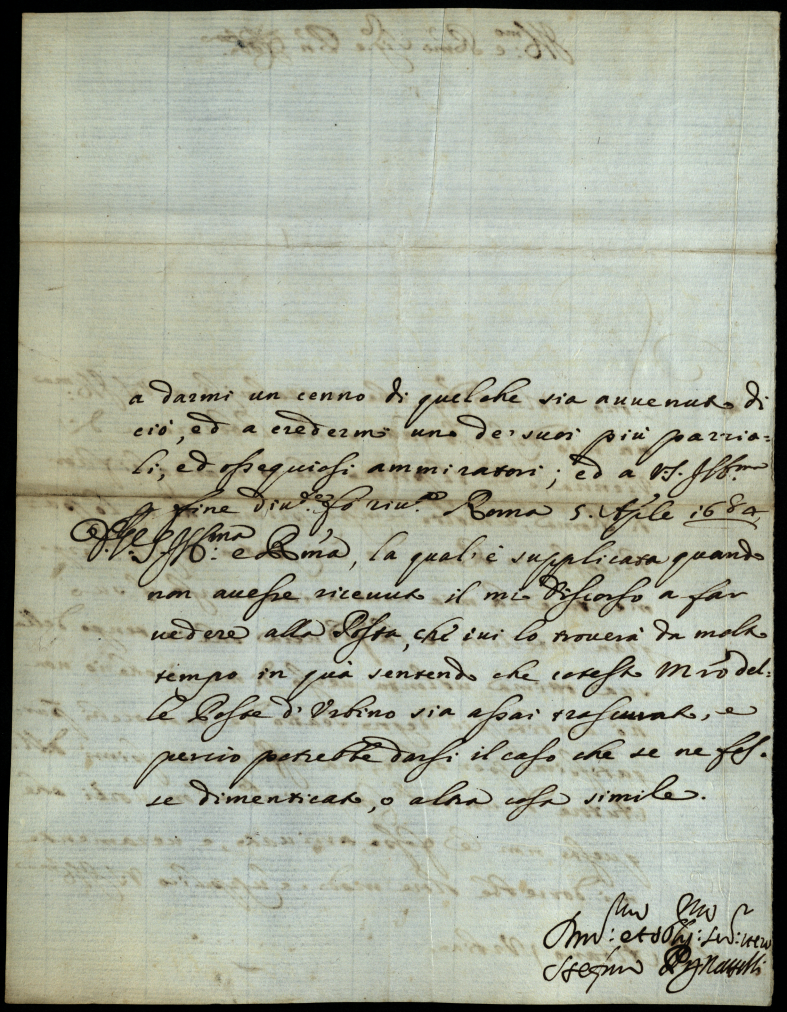 a darmi un cenno di quelche sia auuenuto di
ciò, ed a credermi uno de' suoi più parzia=
li, ed ossequiosi ammiratori; ed a V.S. Ill.ma
fine diu.te fo riu.za Roma 5. Aple 1684
Ill.ma e R.ma, la quale è supplicata quando
non auesse riceuuto il mio discorso a far
uedere alla Posta, che iui lo trouerà da molto
tempo in quà sentendo che cotesto Mro del=
le Poste d'Urbino sia assai trascurato, e
perciò potrebbe darsi il caso che se ne fos=
se dimenticato, o altra cosa simile.
Diu.mo et obl.mo Ser.r uero
Stefano Pignattelli